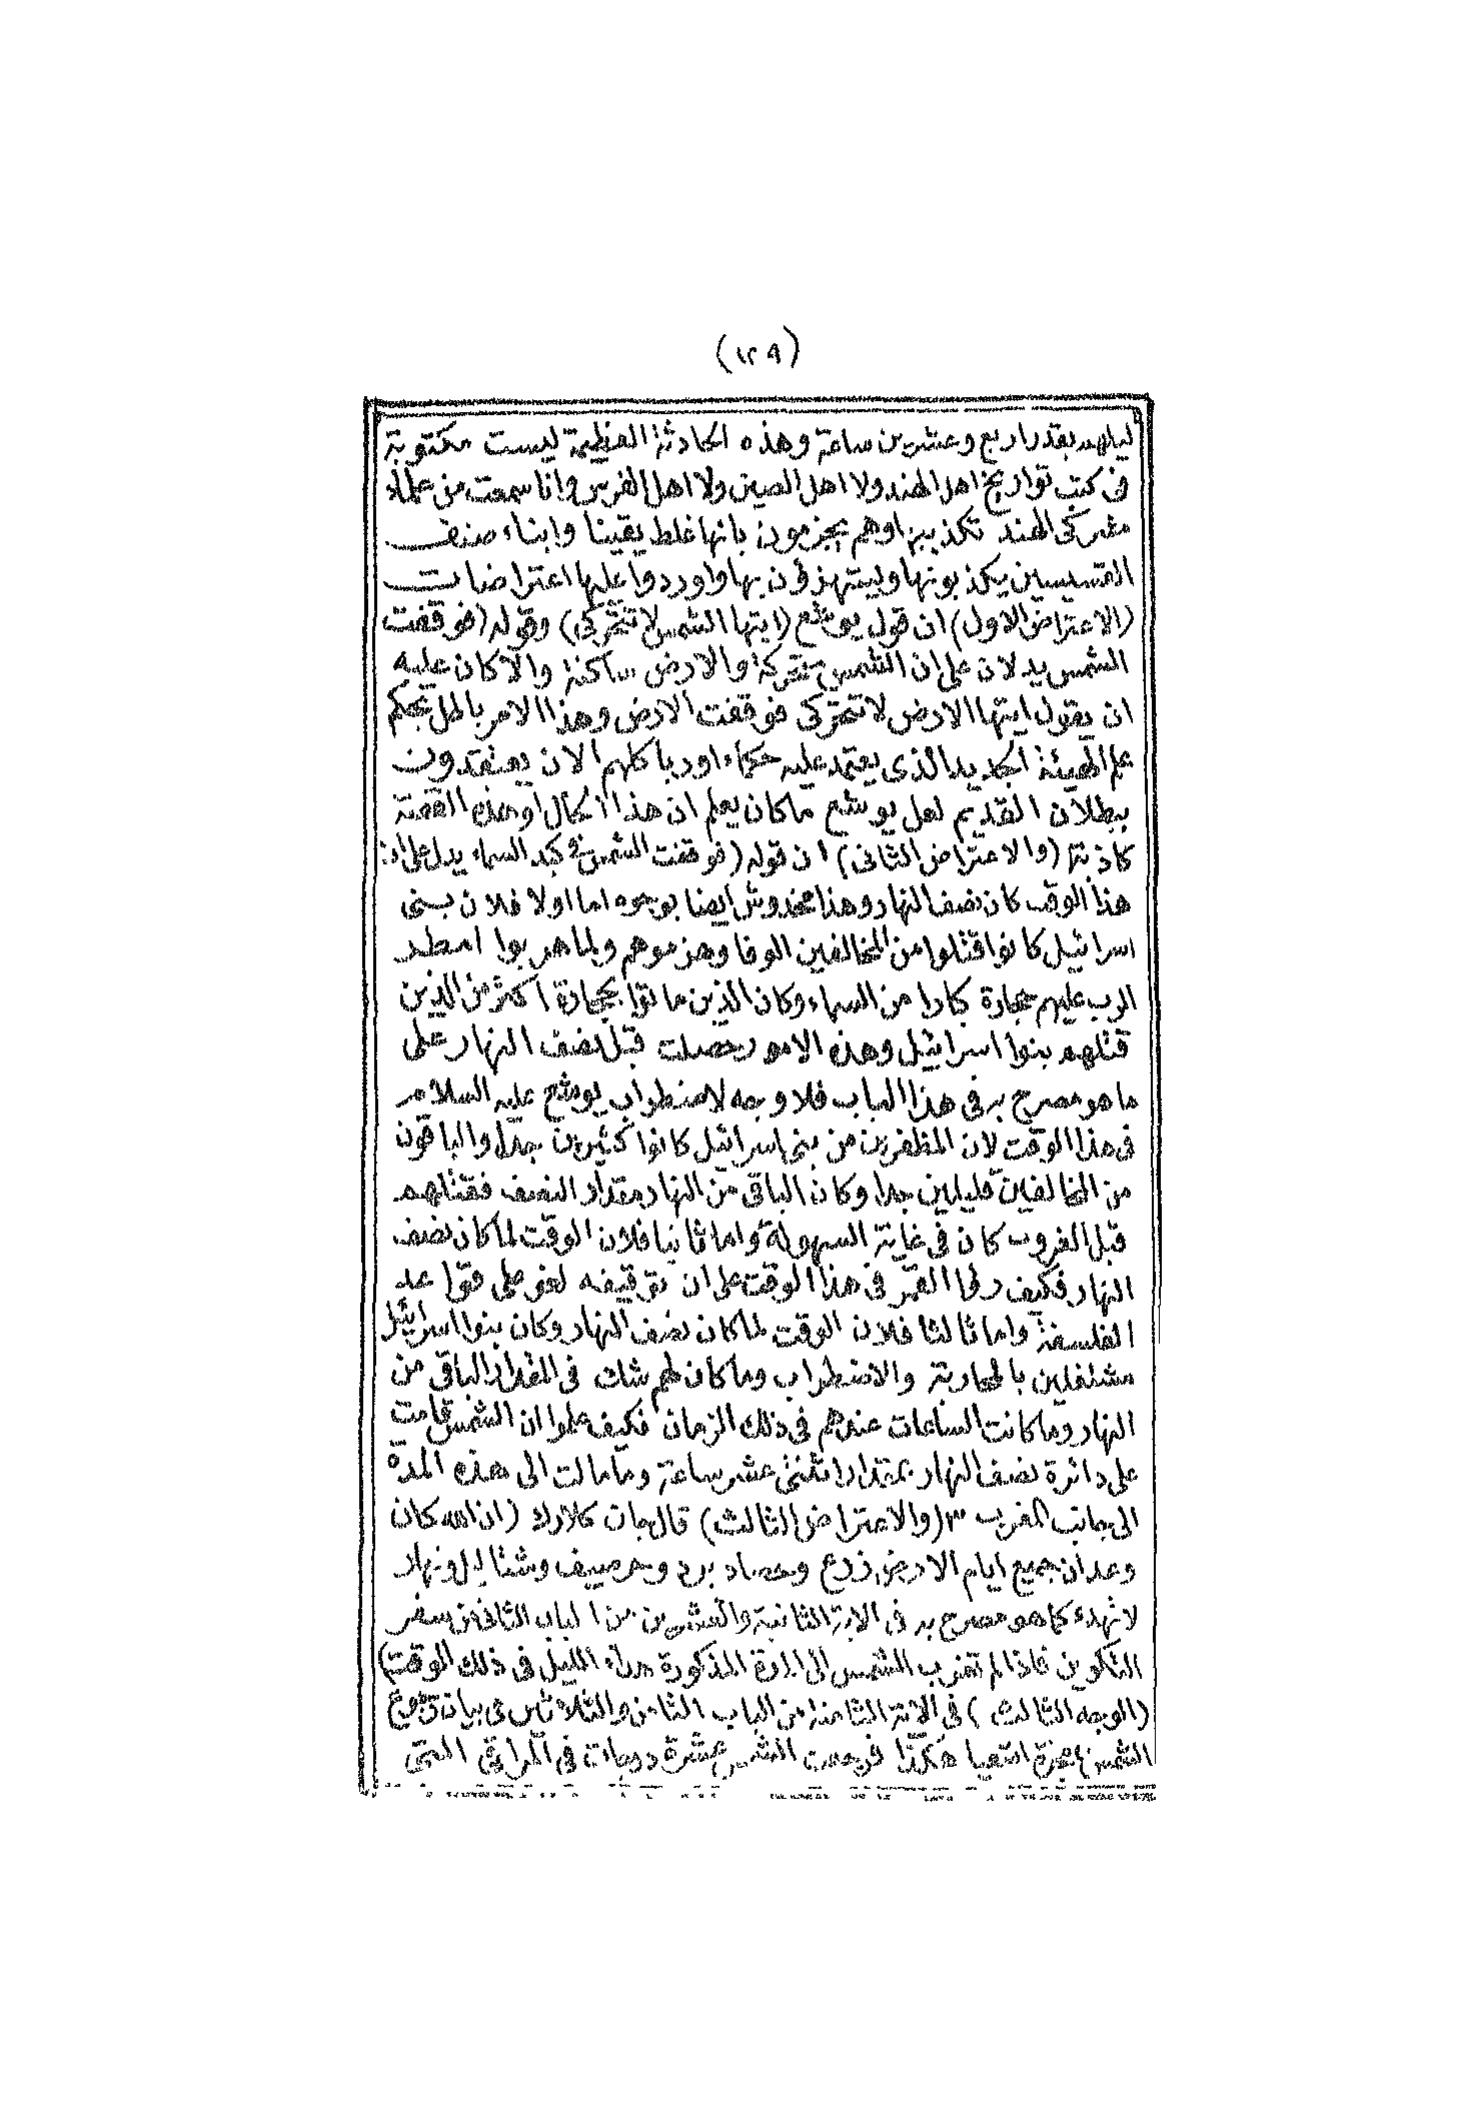 (١٢٩)
ليلهم بقدر اربع وعشرين ساعة وهذه الحادثة العظيمة ليست مكتوبة
فى كتب تواريخ اهل الهند ولا اهل الصين ولا اهل الفرس وانا سمعت من علماء
مشركى الهند تكذيبها وهم يجزمون بانها غلط يقينا وابناء صنف
القسيسين يكذبونها ويستهزؤن بها واوردوا عليها اعتراضات
(الاعتراض الاول) ان قول يوشع (ايتها الشمس لا تتحركى) وقوله (فوقفت
الشمس يدلان على ان الشمس متحركة والارض ساكنة والا كان عليه
ان يقول ايتها الارض لا تتحركى فوقفت الارض وهذا الامر باطل بحكم
علم الهيئة الجديد الذى يعتمد عليه حكماء اوربا كلهم الان يعتقدون
ببطلان القديم لعل يوشع ماكان يعلم ان هذا الحال او هذه القصة
كاذبة (والاعتراض الثانى) ان قوله (فوقفت الشمس فى كبد السماء يدل على ان
هذا الوقت كان نصف النهار وهذا مخدوش ايضا بوجوه اما اولا فلان بنى
اسرائيل كانوا قتلوا من المخالفين الوفا وهزموهم ولما هربوا امطر
الرب عليهم حجارة كبارا من السماء وكان الذين ماتوا بحجارة اكثر من الذين
قتلهم بنوا اسرائيل وهذه الامور حصلت قبل نصف النهار على
ما هو مصرح به فى هذا الباب فلا وجه لاضطراب يوشع عليه السلام
فى هذا الوقت لان المظفرين من بنى اسرائيل كانوا كثيرين جدا والباقون
من المخالفين قليلين جدا وكان الباقى من النهار مقدار النصف فقتلهم
قبل الغروب كان فى غاية السهولة واما ثانيا فلان الوقت لما كان نصف
النهار فكيف راوا القمر فى هذا الوقت على ان توقيفه لغو على قواعد
الفلسفة واما ثالثا فلان الوقت لما كان نصف النهار وكان بنوا اسرائيل
مشتغلين بالمحاربة والاضطراب وما كان لهم شك فى المقدار الباقى من
النهار وما كانت الساعات عندهم فى ذلك الزمان فكيف علموا ان الشمس قامت
على دائرة نصف النهار بمقدار اثنتى عشر ساعة وما مالت الى هذه المدة
الى جانب المغرب ٣ (والاعتراض الثالث) قال جان كلارك (ان الله كان
وعد ان جميع ايام الارض زرع وحصاد برد وحر صيف وشتا ليل ونهار
لا تهدء كما هو مصرح به فى الاية الثانية والعشرين من الباب الثامن من سفر
التكوين فاذا لم تغرب الشمس الى المدة المذكورة هدأ الليل فى ذلك الوقت)
(الوجه الثالث) فى الاية الثامنة من الباب الثامن والثلاثين فى بيان رجوع
الشمس بمعجزة اشعيا هكذا فرجعت الشمس عشرة درجات فى المراقى التى